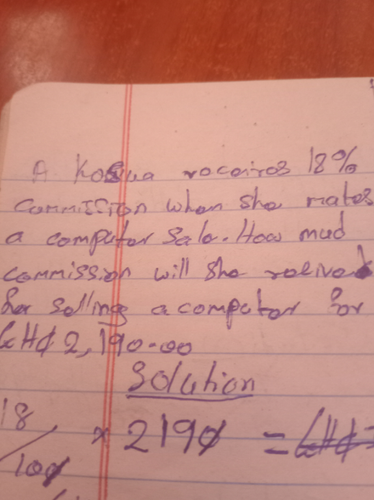 A Kosua receives 18%
commission when she makes
a computer sale. How mud
commission will she relive
for selling a computer for
GH¢ 2,190.00
Solution
18/100 × 2190 = GH¢